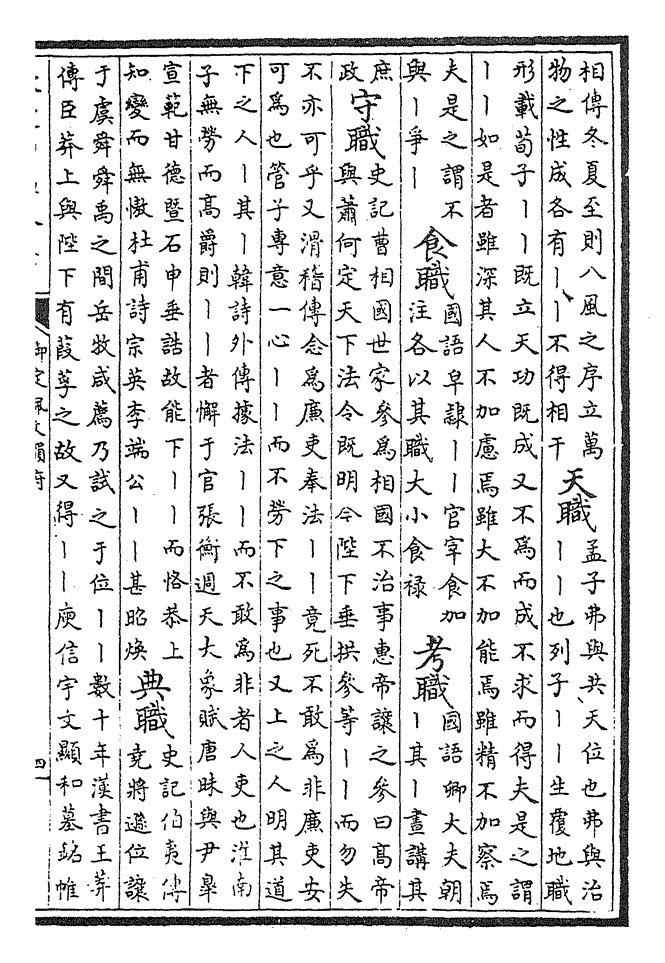 相傳冬夏至則八風之序立萬
物之性成各有｜｜不得相干
天職
孟子弗與共天位也弗與治
｜｜也列子｜｜生覆地職
形載荀子｜｜既立天功既成又不為而成不求而得夫是之謂
｜｜如是者雖深其人不加慮焉雖大不加能焉雖精不加察焉
夫是之謂不
與｜爭｜
食職
國語皁隸｜｜官宰食加
注各以其職大小食祿
考職
國語卿大夫朝
｜其｜晝講其
庶
政
守職
史記曹相國世家參為相國不治事惠帝讓之參曰高帝
與蕭何定天下法令既明今陛下垂拱參等｜｜而勿失
不亦可乎又滑稽傳念為廉吏奉法｜｜竟死不敢為非廉吏安
可為也管子專意一心｜｜而不勞下之事也又上之人明其道
下之人｜其｜韓詩外傳據法｜｜而不敢為非者人吏也淮南
子無勞而高爵則｜｜者懈于官張衡週天大象賦唐昧與尹皋
宣範甘德暨石申垂誥故能下｜｜而恪恭上
知變而無慠杜甫詩宗英李端公｜｜甚昭煥
典職
史記伯夷傳
堯將遜位讓
于虞舜舜禹之間岳牧咸薦乃試之于位｜｜數十年漢書王莽
傳臣莽上與陛下有葭莩之故又得｜｜庾信宇文顯和墓銘帷
御定佩文韻府